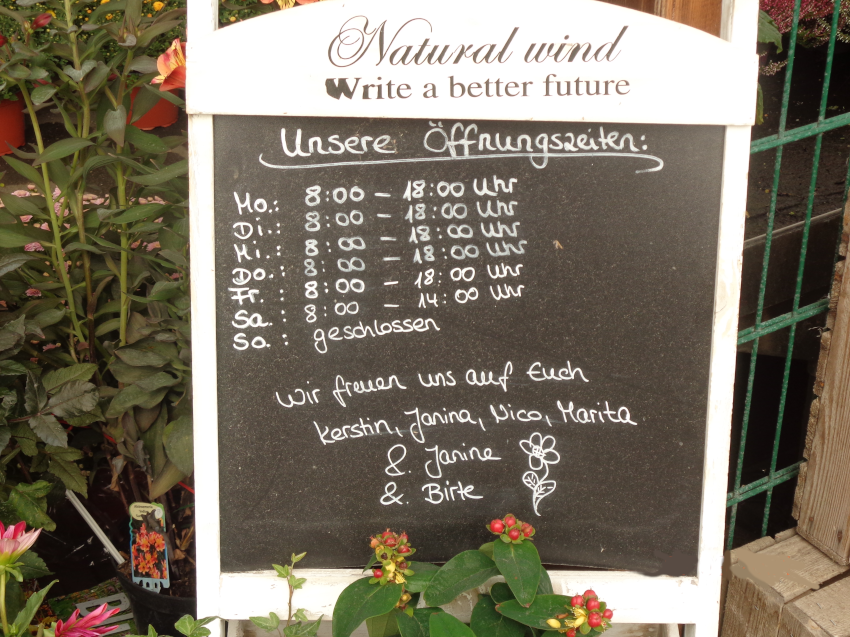 Natural wind
Write a better future
Unsere Öffnungszeiten:
Mo.: 8:00 - 18:00 Uhr
Di.: 8:00 - 18:00 Uhr
Mi.: 8:00 - 18:00 Uhr
Do.: 8:00 - 18:00 Uhr
Fr.: 8:00 - 18:00 Uhr
Sa.: 8:00 - 14:00 Uhr
So.: geschlossen
Wir freuen uns auf Euch
Kerstin, Janina, Nico, Marita
&. Janine
&. Birte